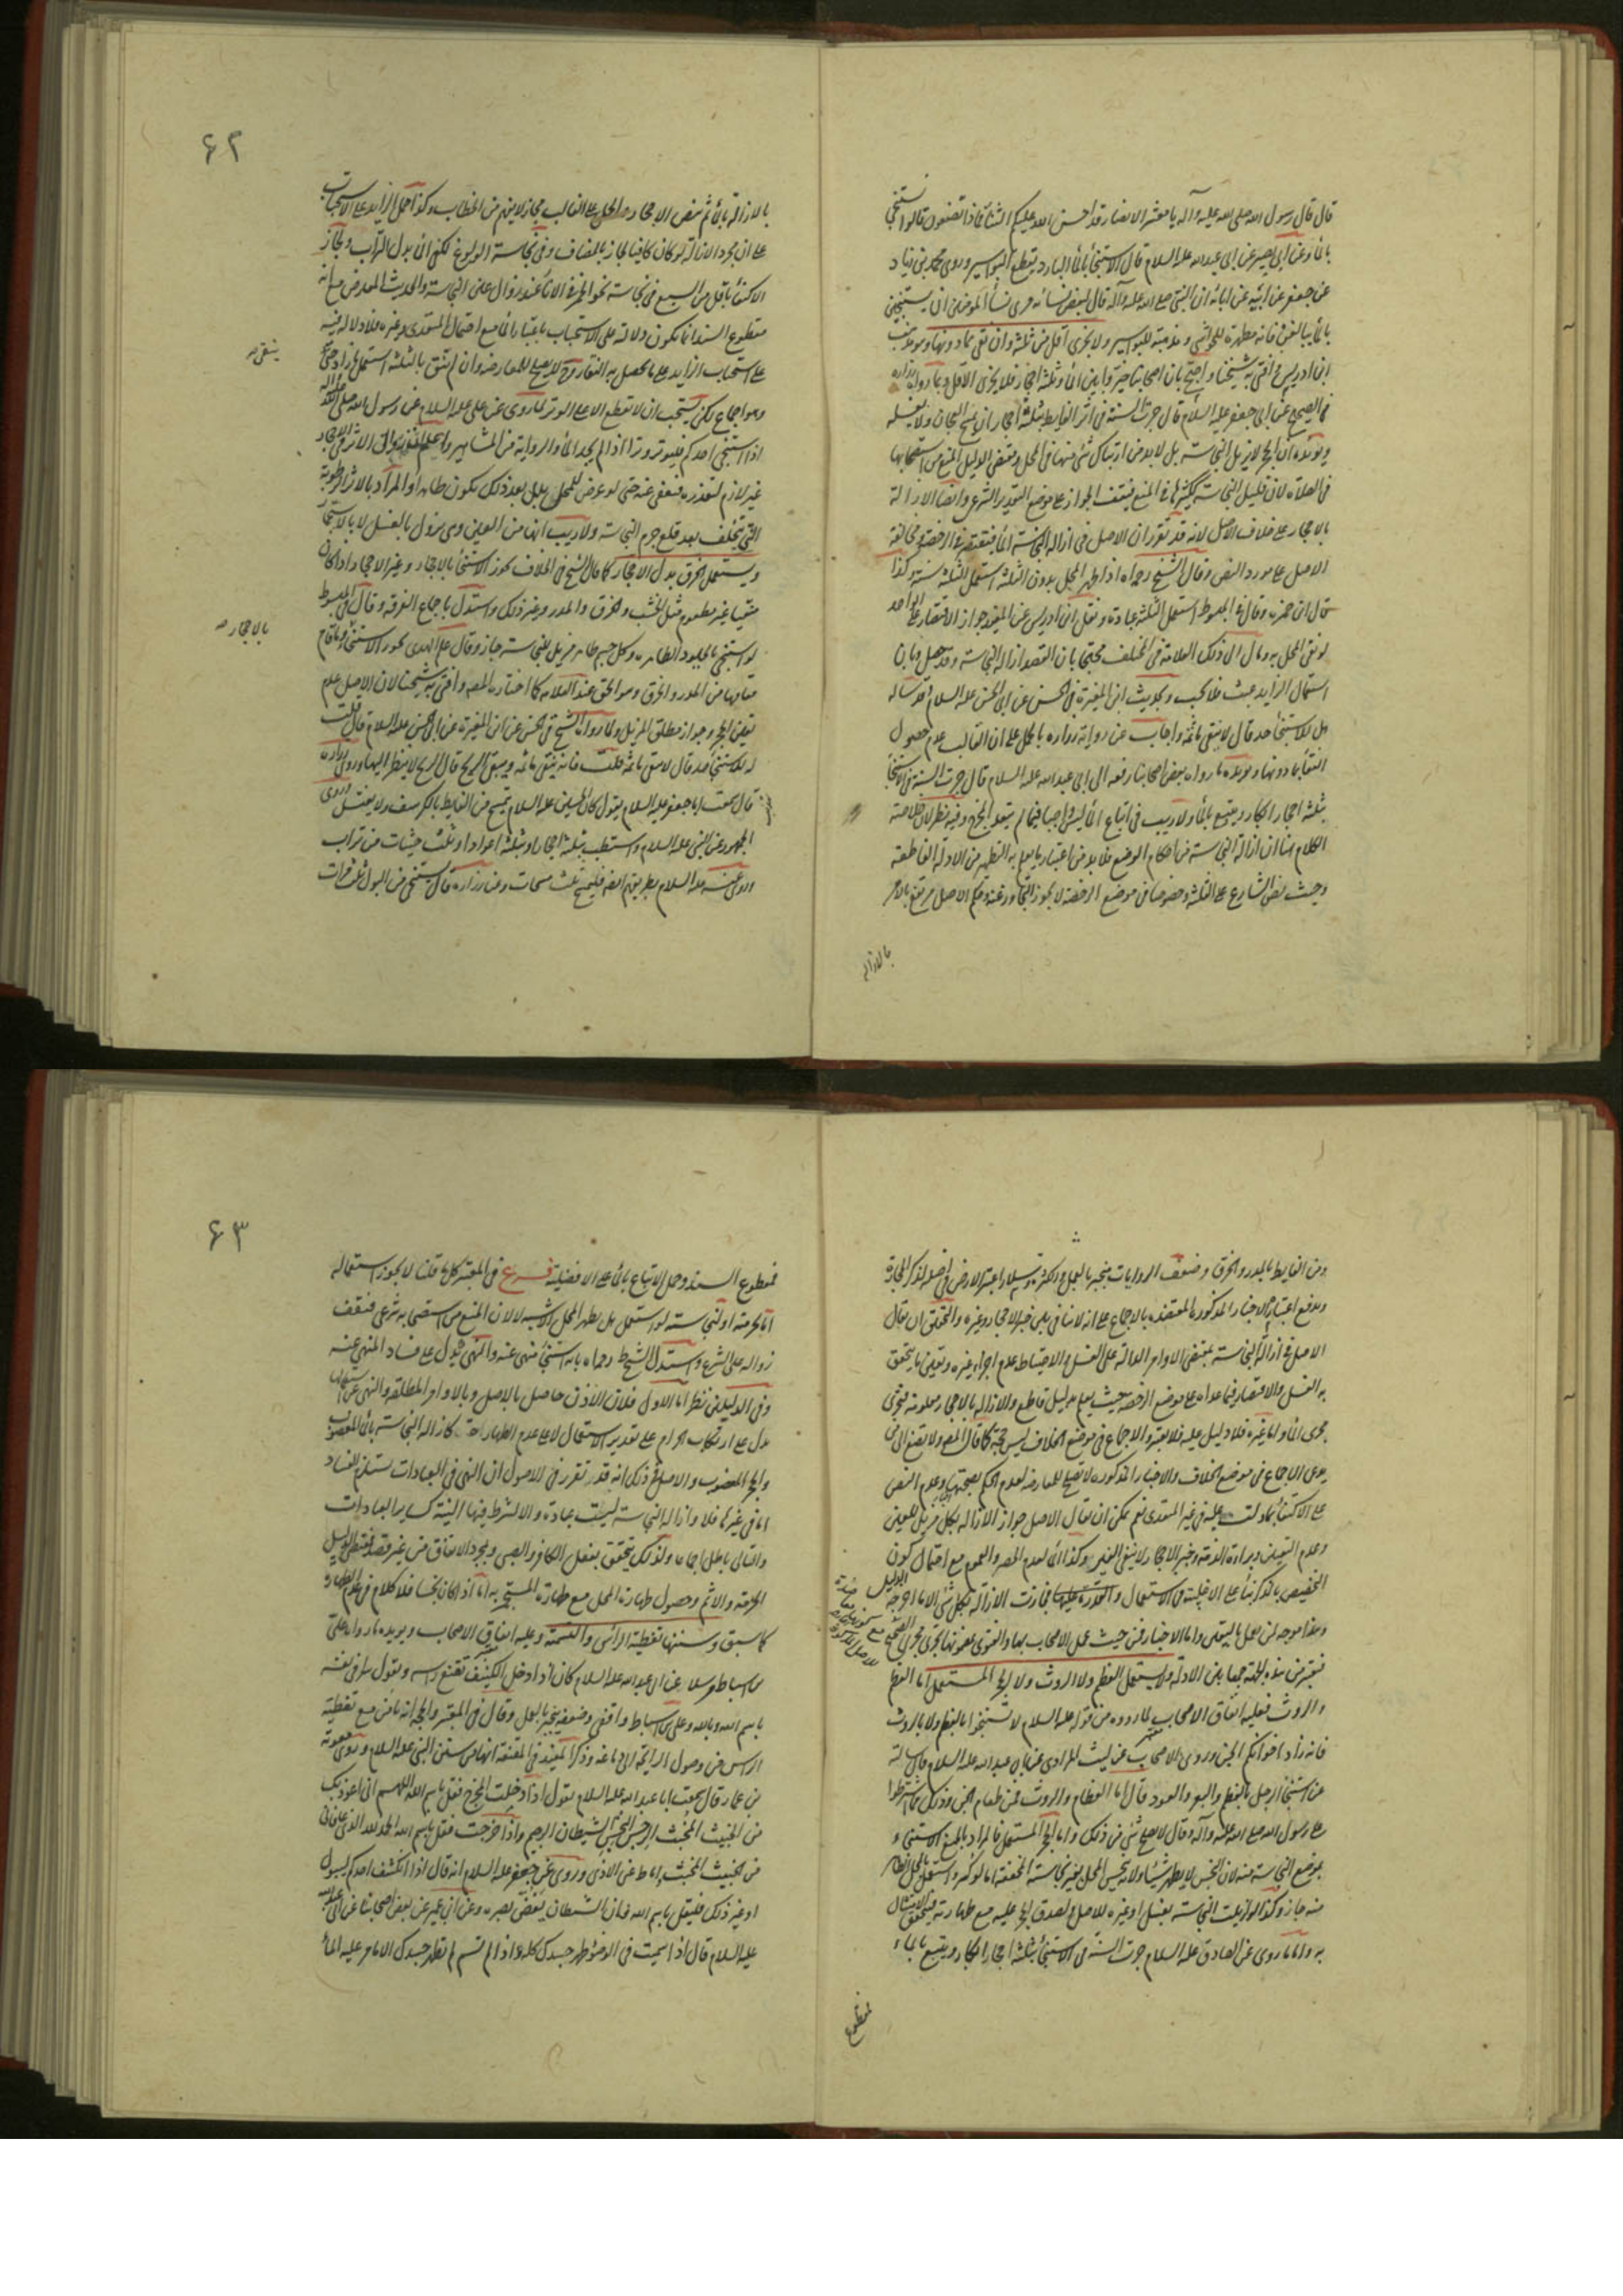 قال قال رسول الله صلى الله عليه وآله يا معشر الانصار قد احسن الله عليكم الثناء فماذا تصنعون قالوا نستنجي
بالماء وعن ابي بصير عن ابي عبدالله عليه السلام قال الاستنجاء بالماء البارد يقطع البواسير وروى محمد بن زياد
عن جعفر عن ابيه عن ابائه ان النبي صلى الله عليه وآله قال لبعض نسائه مري نساء المومنين ان يستنجين
بالماء ويبالغن فانه مطهرة للحواشي ومذهبة للبواسير ولا يجزى اقل من ثلثة وان نقى بما دونها وهو مذهب
ابن ادريس وافتى به شيخنا واحتج بان اصحابنا خيروا بين الماء وثلثة احجار فلا يجزى الاقل وبما رواه زرارة
في الصحيح عن ابي جعفر عليه السلام قال جرت السنة في اثر الغايط بثلثة احجار ان يمسح العجان ولا يغسله
ويؤيده ان الحجر لا يزيل النجاسة بل لا بد من ارتباك شئ منها في المحل ومقتضى الدليل المنع من استصحابها
في الصلاة لان قليل النجاسة ككثيرها في المنع فيقف الجواز على موضع التقدير الشرعي وايضا الازالة
بالاحجار على خلاف الاصل لانه قد تقرر ان الاصل في ازالة النجاسة الماء فيقتصر في الرخصة ومخالفة
الاصل على مورد النص وقال الشيخ رحمه الله اذا طهر المحل بدون الثلثة استعمل الثلثة سنة وكذا
قال ابن حمزه وقال في المبسوط استعمل الثلثة عبادة ونقل ابن ادريس عن المفيد جواز الاقتصار على الواحد
لو نقى المحل به ومال الى ذلك العلامة في المختلف محتجا بان القصد ازالة النجاسة وقد حصل وبان
استعمال الزايد عبث فلا يجب وبحديث ابن المغيرة في الحسن عن ابي الحسن عليه السلام قد ساله
هل للاستنجاء حد قال لا ينقى ما ثمة واجاب عن رواية زرارة بالحمل على ان الغالب عدم حصول
النقاء بما دونها ويؤيده ما رواه بعض اصحابنا رفعه الى ابي عبدالله عليه السلام قال جرت السنة في الاستنجاء
بثلثة احجار ابكار ويتبع بالماء ولا ريب في اتباع الماء ليس واجبا فيما لم يتعد المخرج وفيه نظر لان خلاصة
الكلام هنا ان ازالة النجاسة من احكام الوضع فلا بد من اعتبار ما يعلم به التطهر من الادلة القاطعة
وحيث نص الشارع على الثلثة وخصوصا في موضع الرخصة لا يجوز التجاوز عنه وحكم الاصل مرتفع بالامر
بالازالة
٦٢
بالازالة بالماء ثم بنص الاحجار والحمل على الغالب مجاز لا يفهم من الخطاب وكذا حمل الزايد على الاستحباب
على ان مجرد الازالة لو كان كافيا لجاز بالمضاف وفي نجاسة الولوغ لكن الى بدل التراب ولجاز
الاكتفاء باقل من السبع في نجاسة نحو الخمر في الاناء عند زوال عين النجاسة والحديث المعارض مع انه
مقطوع السند انما تكون دلالته على الاستحباب باعتبار الماء مع احتمال المتعدى وغيره فلا دلالة فيه
على استحباب الزايد على ما يحصل به النقاء وح لا يصلح للمعارضة وان لم ينق بالثلثة استعمل ما زاد حتى
ينقى صح
وهو اجماع لكن يستحب ان لا يقطع الا على الوتر لما روى عن علي عليه السلام عن رسول الله صلى الله عليه وآله
اذا استنجى احدكم فليوتر وترا اذا لم يجد الماء والرواية من المشاهير واعلم ان زوال الاثر في الاحجار
غير لازم لتعذره فيعفى عنه حتى لو عرض للمحل بلل بعد ذلك يكون طاهرا والمراد بالاثر الرطوبة
التي تتخلف بعد قلع جرم النجاسة ولا ريب انها من العين وهي تزول بالغسل لا بالاستجمار
ويستعمل الخرق بدل الاحجار كما قال الشيخ في الخلاف يجوز الاستنجاء بالاحجار وغير الاحجار اذا كان
منقيا غير مطعوم مثل الخشب والخرق والمدر وغير ذلك واستدل باجماع الفرقة وقال في المبسوط
لو استنجى بالجلود الطاهرة وكل جسم طاهر مزيل للنجاسة جاز وقال علم الهدى يجوز الاستنجاء وما قام
بالاحجار صح
مقامها من المدر والخرق وهو الحق عند العلامة كما اختاره المصه وافتى به شيخنا لان الاصل عدم
تعين الحجر وجواز مطلق المزيل ولما رواه الشيخ في الحسن عن ابن المغيرة عن ابي الحسن عليه السلام قال قلت
له للاستنجاء حد قال لا ينقى ما ثمة قلت فانه ينقى ما ثمة ويبقى الريح قال الريح لا ينظر اليها وروى زرارة
قال سمعت ابا جعفر عليه السلام يقول كان الحسين عليه السلام يتمسح من الغايط بالكرسف ولا يغتسل وروى
الجمهور عن النبي عليه السلام واستطب بثلثة احجار او بثلثة اعواد او بثلث حثيات من تراب
وروى عنه عليه السلام بطريقهم ايضا فليمسح ثلث مسحات وعن زرارة قال يستنجى من البول ثلث مرات
ومن الغايط بالمدر والخرق وضعف الروايات منجبر بالعمل والكثرة وسلار اعتبر الارض في اصله لذكر الحجارة
ويدفع اعتباره الاخبار المذكورة المعتضدة بالاجماع على انه لا منافى بين خبر الاحجار وغيره والتحقيق ان يقال
الاصل في ازالة النجاسة بمقتضى الاوامر الدالة على الغسل والاحتياط عدم اجزاء غيره وتعين ما يتحقق
به الغسل والاقتصار فيما عداه على موضع الرخصة حيث يعلم بدليل قاطع والازالة بالاحجار معلومة فتجرى
مجرى الماء واما غيره فلا دليل عليه فلا يعتبر والاجماع في موضع الخلاف ليس حجة كما قال المصه ولا يصغ الى من
يدعى الاجماع في موضع الخلاف والاخبار المذكورة لا تصلح للمعارضة لعدم الحكم بصحتها وعدم النص
على الاكتفاء بما دلت عليه في غير المتعدى نعم يمكن ان يقال الاصل جواز الازالة بكل مزيل للعين
وعدم التعين وبراءة الذمة وخبر الاحجار لا ينفى الغير وكذا الماء لعدم الحصر والعموم مع احتمال كون
التخصيص بالذكر بناء على الاغلبية في الاستعمال والقدرة عليها فجازت الازالة بكل شئ الا ما اخرجه الدليل
وهذا موجه لمن يعمل باليقين واما الاخبار فمن حيث عمل الاصحاب بها والفتوى بمضمونها تجرى مجرى الصحيح
فتعتبر من هذه الجهة جمعا بين الادلة ولا يستعمل العظم ولا الروث ولا الحجر المستعمل اما العظم
والروث فعليه اتفاق الاصحاب لما رووه من قوله عليه السلام لا تستنجوا بالعظم ولا بالروث
فانه زاد اخوانكم الجن وروى الاصحاب عن ليث المرادى عن ابي عبدالله عليه السلام قال سالته
عن استنجاء الرجل بالعظم والبعر والعود قال اما العظام والروث فمن طعام الجن وذلك مما اشترطوا
على رسول الله صلى الله عليه وآله وقال لا يصلح شئ من ذلك واما الحجر المستعمل فالمراد بالمنع الاستنجاء
بموضع النجاسة منه لان النجس لا يطهر شيئا ولانه ينجس المحل بغير نجاسته المخففة اما لو كسر واستعمل المحل الطاهر
منه جاز وكذا لو ازيلت النجاسة بغسل او غيره للاصل ولصدق الحجر عليه مع طهارته فيتحقق الامتثال
به واما ما روى عن الصادق عليه السلام جرت السنة في الاستنجاء بثلثة احجار ابكار ويتبع بالماء
فمقطوع
٦٣
فمقطوع السند وحمل الاتباع بالماء على الافضلية فرع في المعتبر كلما قلنا لا يجوز استعماله
اما لحرمته او لنجاسته لو استعمل هل يطهر المحل الاشبه لا لان المنع من استصحابه شرعى فيقف
زواله على الشرع واستدل الشيخ رحمه الله بانه استنجاء منهى عنه والنهى محمول على فساد المنهى عنه
وفي الدليلين نظر اما الاول فلان الاذن حاصل بالاصل وبالاوامر المطلقة والنهى عن استعمالها
يدل على ارتكاب الحرام على تقدير الاستعمال لا على عدم الطهارة كازالة النجاسة بالماء المغصوب
والحجر المغصوب والاصل في ذلك انه قد تقرر في الاصول ان النهى في العبادات يستلزم الفساد
اما في غيرها فلا وازالة النجاسة ليست عبادة والا لشرط فيها النية كساير العبادات
والتالى باطل اجماعا ولذلك يتحقق بفعل الكافر والصبى وبمجرد الاتفاق من غير قصد فمقتضى الدليل
الحرمة والاثم وحصول طهارة المحل مع طهارة المستنجى به اما اذا كان نجسا فلا كلام في عدم الطهارة
كما سبق وسننها تغطية الراس والتسمية وعليه اتفاق الاصحاب ويؤيده ما رواه علي
بن اسباط مرسلا عن ابي عبدالله عليه السلام كان اذا دخل الكنيف تقنع راسه ويقول سرا في نفسه
باسم الله وبالله وعلي بن اسباط واقفى وضعفه ينجبر بالعمل وقال في المعتبر والحجة انه يامن مع تغطية
الراس من وصول الرائحة الى دماغه وذكر المفيد في المقنعة انها من سنن النبي عليه السلام وروى معوية
بن عمار قال سمعت ابا عبدالله عليه السلام يقول اذا دخلت المخرج فقل باسم الله اللهم انى اعوذ بك
من الخبيث المخبث الرجس النجس الشيطان الرجيم واذا خرجت فقل باسم الله الحمد لله الذى عافانى
من الخبيث المخبث واماط عنى الاذى وروى عن جعفر عليه السلام انه قال اذا انكشف احدكم لبول
او غير ذلك فليقل باسم الله فان الشيطان يغض بصره وعن ابن ابي عمير عن بعض اصحابنا عن ابي عبدالله
عليه السلام قال اذا سميت في الوضوء طهر جسدك كله واذا لم تسم لم يطهر جسدك الا ما مر عليه الماء